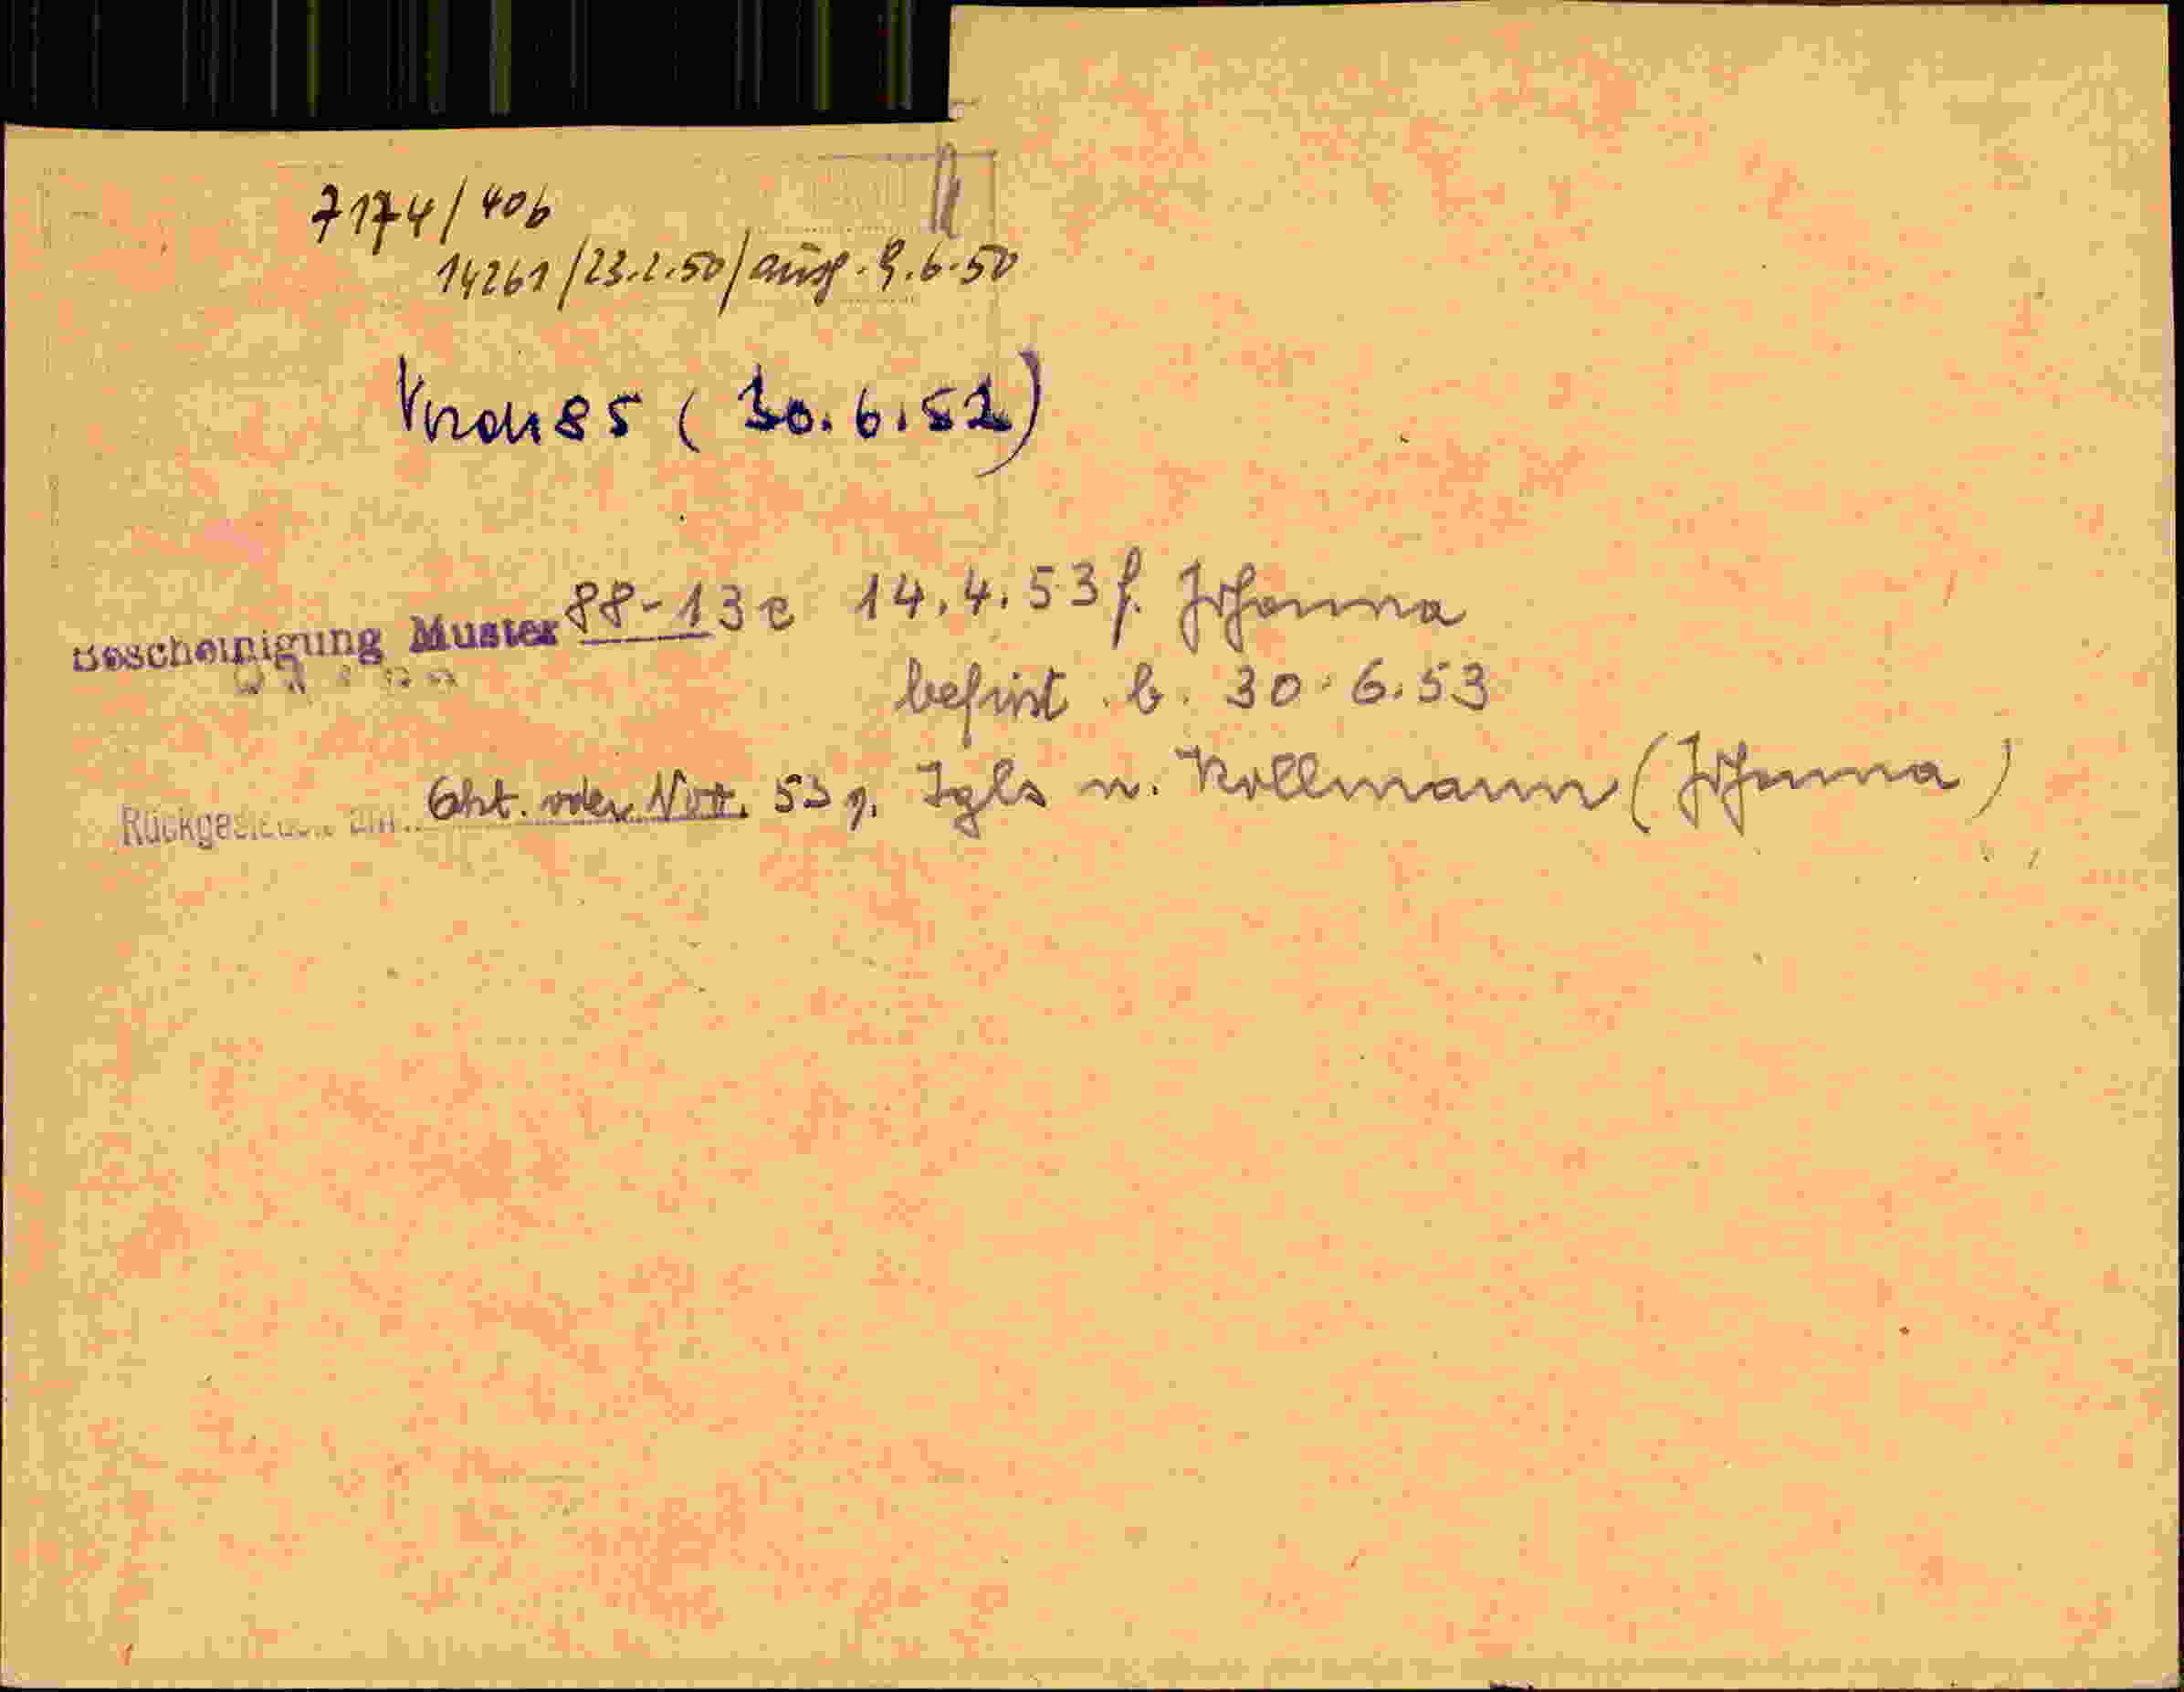 7174/40b
14261/23.2.50/ausg. 9.6.50
Vordr 85 (30.6.52)
Bescheinigung Muster 88-13c 14.4.53 f. Johanna
befrist. b. 30.6.53
Rückgesandt am Okt. oder Nov. 53 g. Igls n. Kollmann (Johanna)